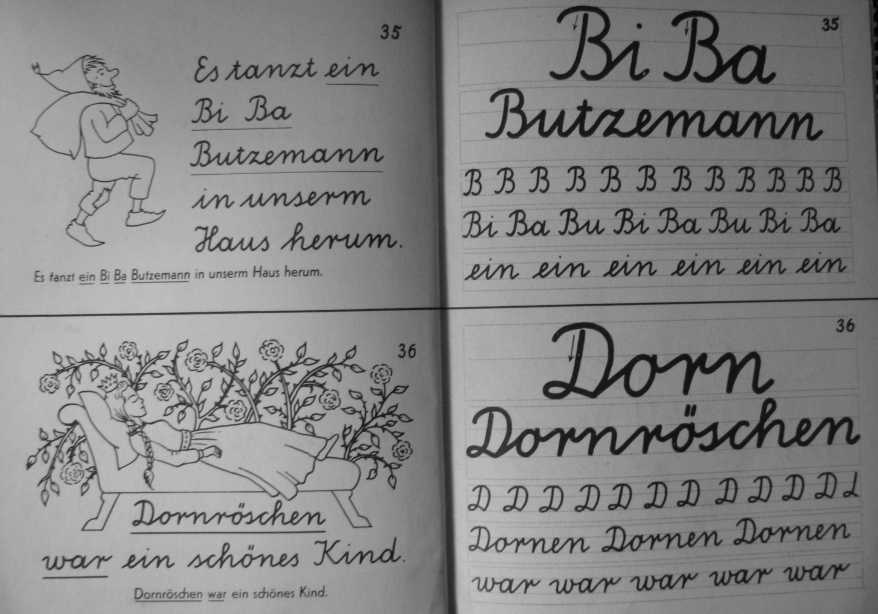 35
Es tanzt ein
Bi Ba
Butzemann
in unserm
Haus herum.
Es tanzt ein Bi Ba Butzemann in unserm Haus herum.
35
Bi Ba
Butzemann
B B B B B B B B B B B
Bi Ba Bu Bi Ba Bu Bi Ba
ein ein ein ein ein ein
36
Dornröschen
war ein schönes Kind.
Dornröschen war ein schönes Kind.
36
Dorn
Dornröschen
D D D D D D D D D D D
Dornen Dornen Dornen
war war war war war